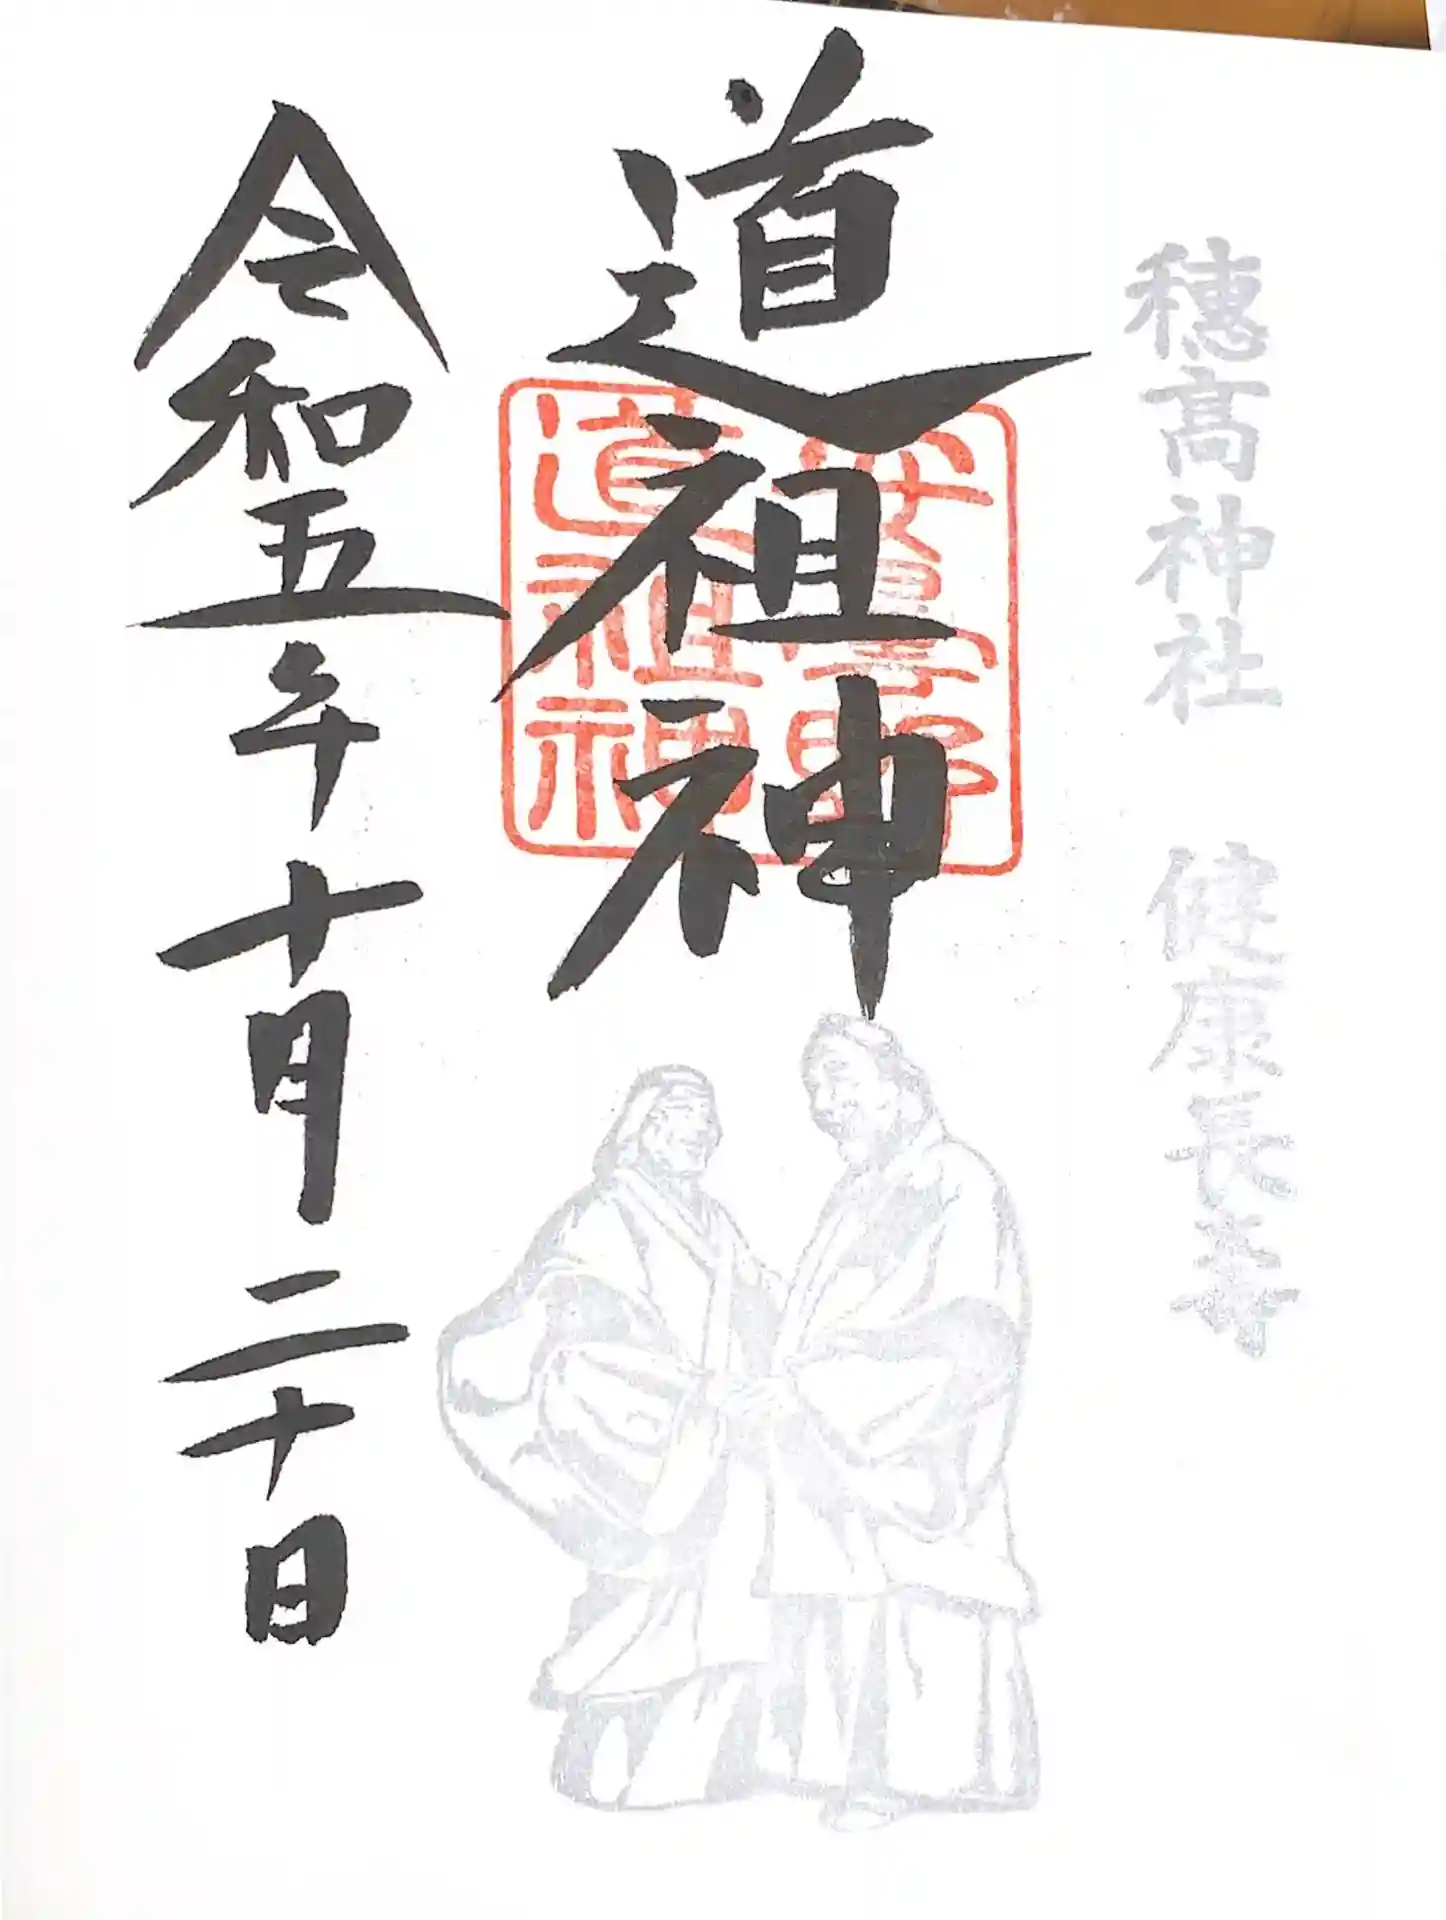 穂髙神社 健康長寿
道祖神
安曇野
道祖神
令和五年十月二十日